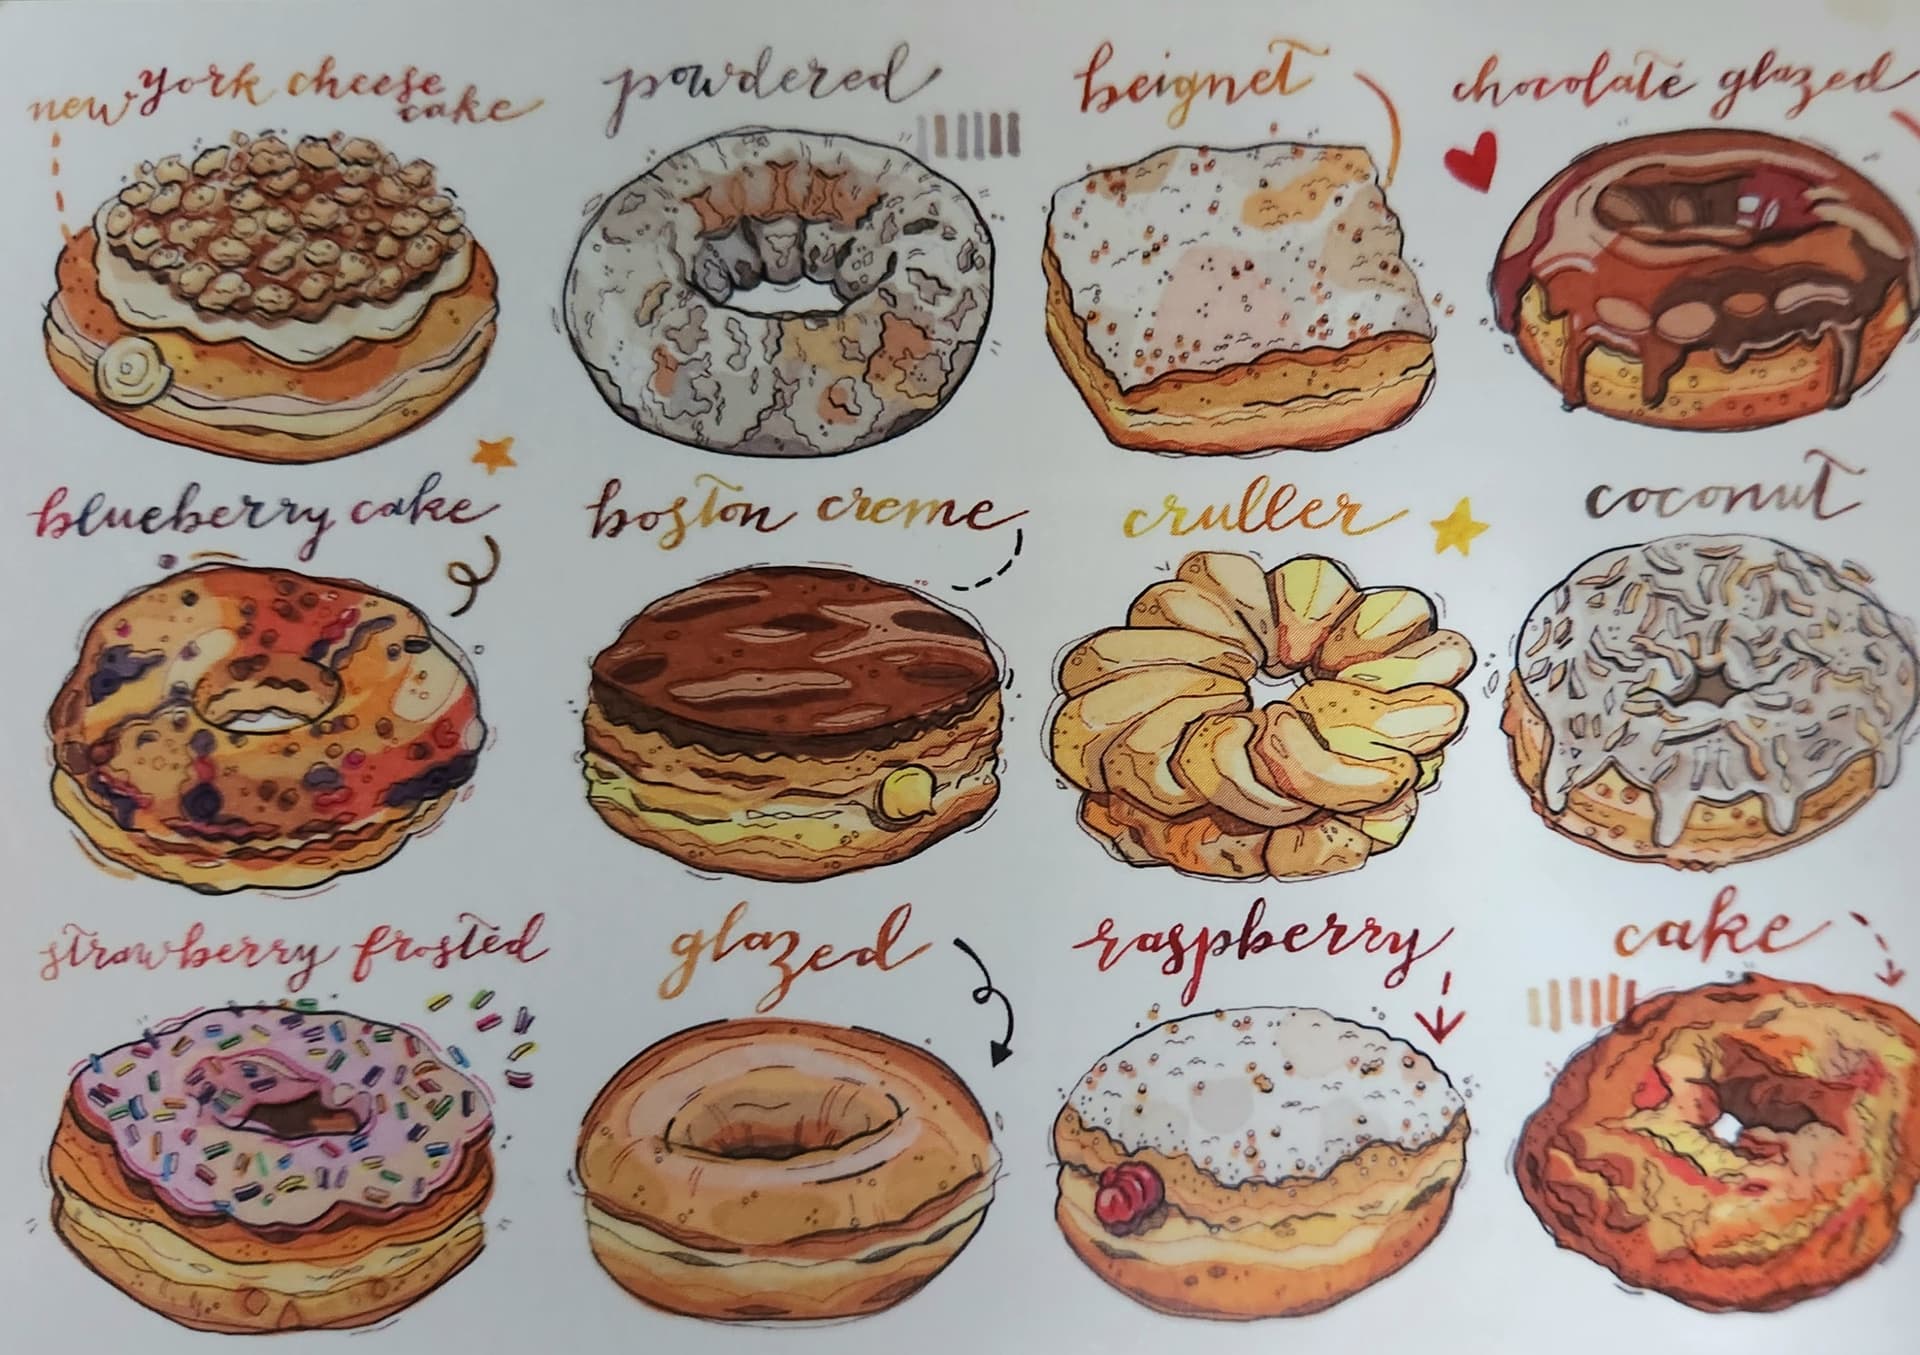 new york cheese
cake
powdered
beignet
chocolate glazed
blueberry cake
boston creme
cruller
coconut
strawberry frosted
glazed
raspberry
cake